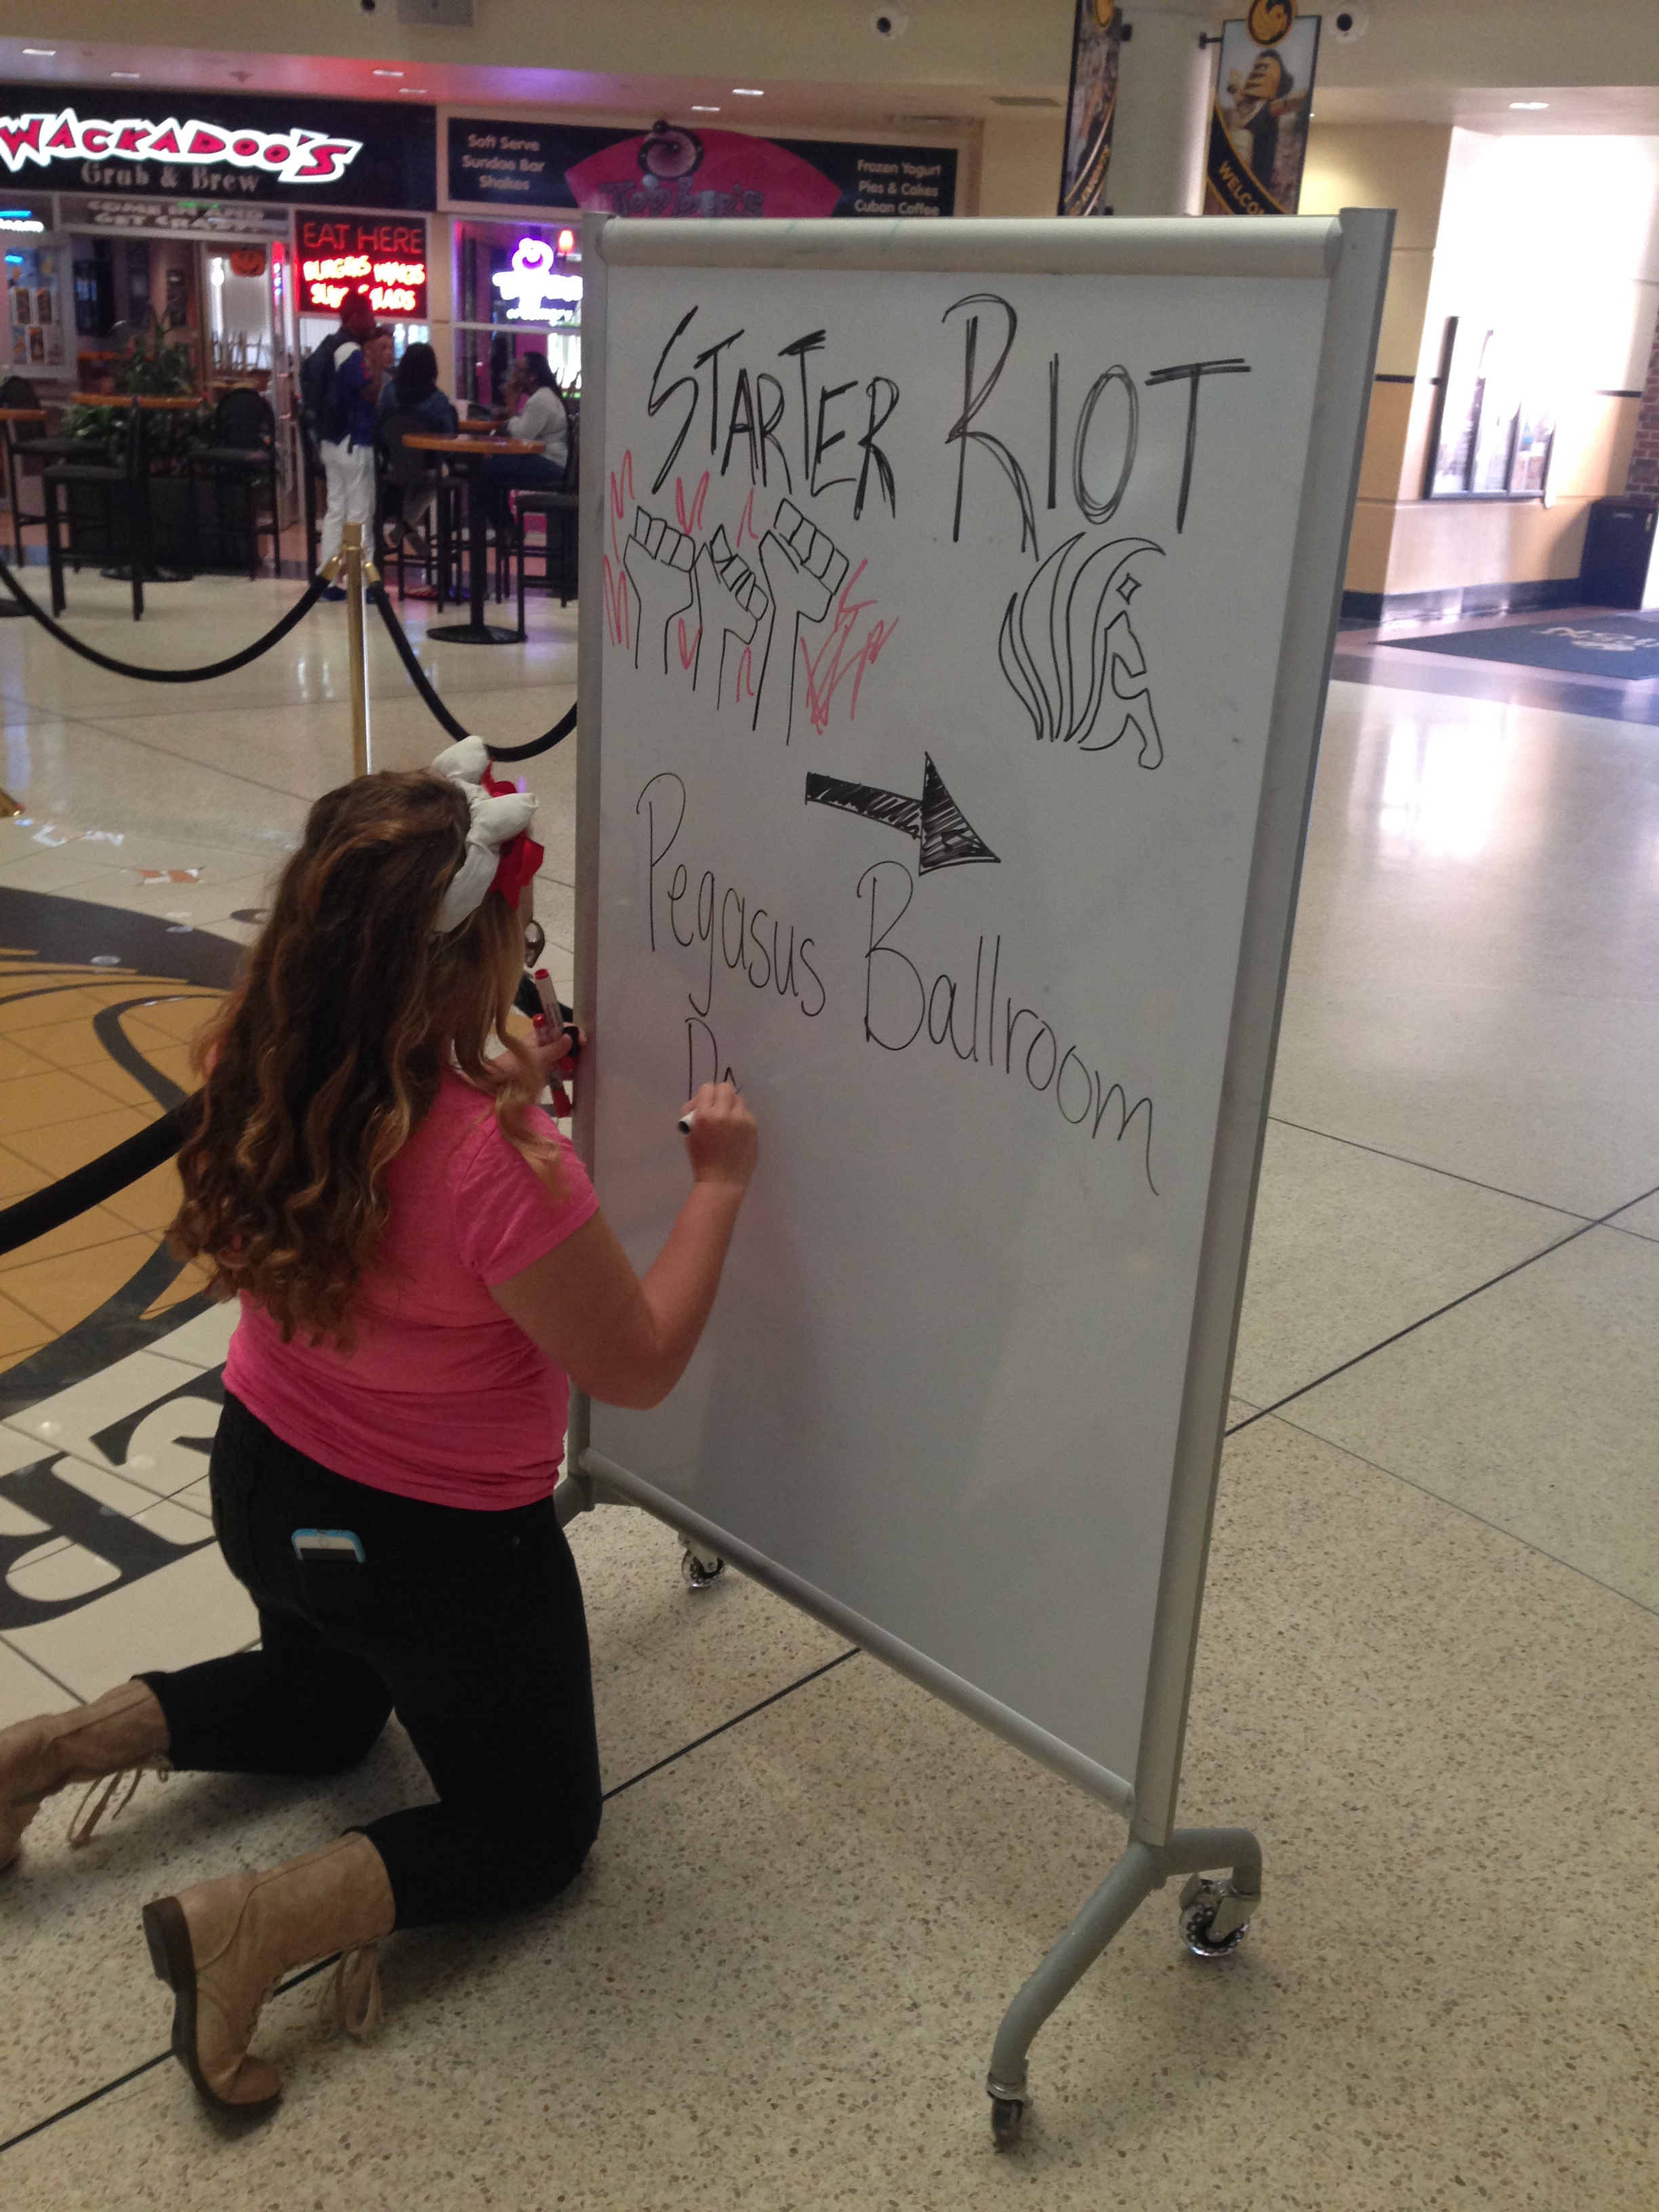 WACKADOO'S
Grub & Brew
COME IN AND
GET CRAZY
EAT HERE
BURGERS WINGS
Soft Serve
Sundae Bar
Shakes
Topper's
Frozen Yogurt
Pies & Cakes
Cuban Coffee
STARTER RIOT
Pegasus Ballroom